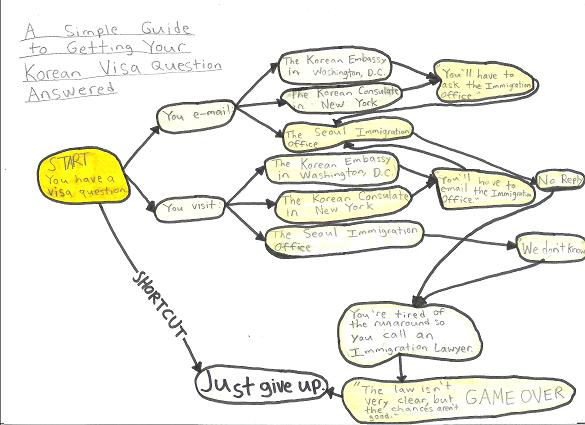 A Simple Guide
to Getting Your
Korean Visa Question
Answered
The Korean Embassy
in Washington, D.C.
"You'll have to
ask the Immigration
Office."
The Korean Consulate
in New York
You e-mail
The Seoul Immigration
Office
START
You have a
visa question
The Korean Embassy
in Washington, D.C.
"You'll have to
email the Immigration
Office."
No Reply
You visit
The Korean Consulate
in New York
The Seoul Immigration
Office
We don't know
SHORTCUT
You're tired of
the runaround so
you call an
Immigration Lawyer.
Just give up.
"The law isn't
very clear, but
the chances aren't
good."
GAME OVER